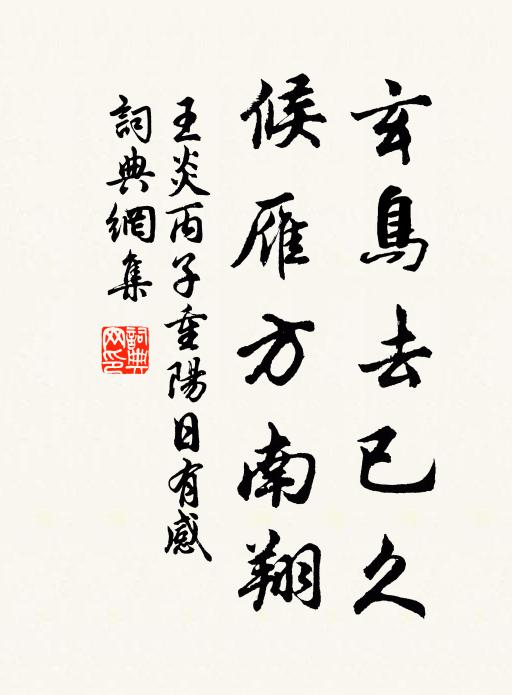 玄鳥去已久
候雁方南翔
王炎丙子重陽日有感
詞典網集
詞典
网印